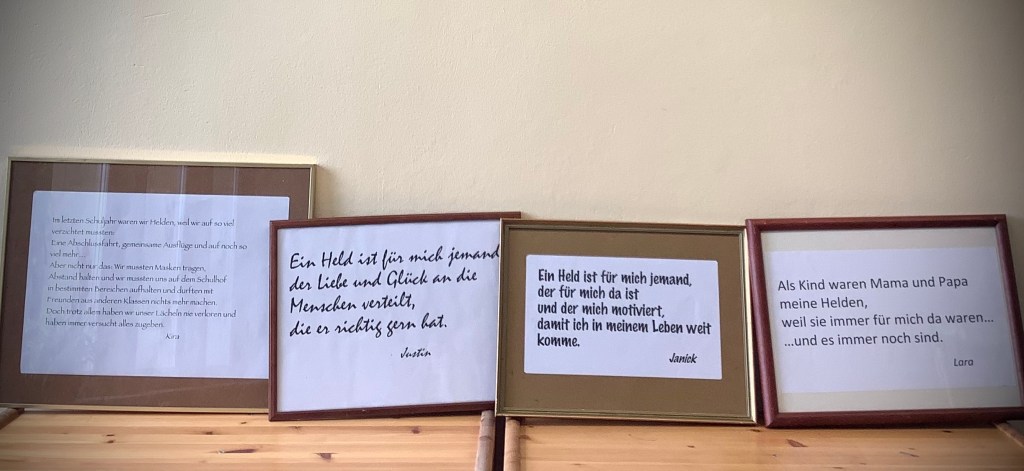 Im letzten Schuljahr waren wir Helden, weil wir auf so viel
verzichtet mussten:
Eine Abschlussfahrt, gemeinsame Ausflüge und auf noch so
viel mehr...
Aber nicht nur das: Wir mussten Masken tragen,
Abstand halten und wir mussten uns auf dem Schulhof
in bestimmten Bereichen aufhalten und durften mit
Freunden aus anderen Klassen nichts mehr machen.
Doch trotz allem haben wir unser Lächeln nie verloren und
haben immer versucht alles zugeben.
Kira
Ein Held ist für mich jemand
der Liebe und Glück an die
Menschen verteilt,
die er richtig gern hat.
Justin
Ein Held ist für mich jemand,
der für mich da ist
und der mich motiviert,
damit ich in meinem Leben weit
komme.
Janick
Als Kind waren Mama und Papa
meine Helden,
weil sie immer für mich da waren...
...und es immer noch sind.
Lara